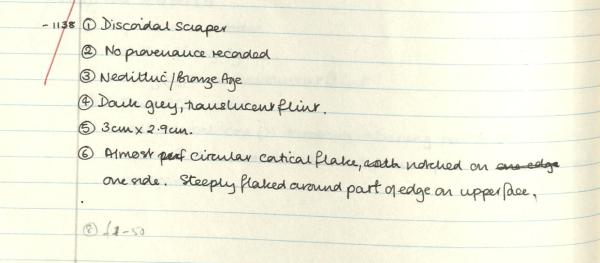 -1138 ① Discoidal Scraper
② No provenance recorded
③ Neolithic/Bronze Age
④ Dark grey, translucent flint.
⑤ 3cm x 2.9cm.
⑥ Almost circular cortical flake, notched on one edge
one side. Steeply flaked around part of edge on upper face.
⑧ £1-50